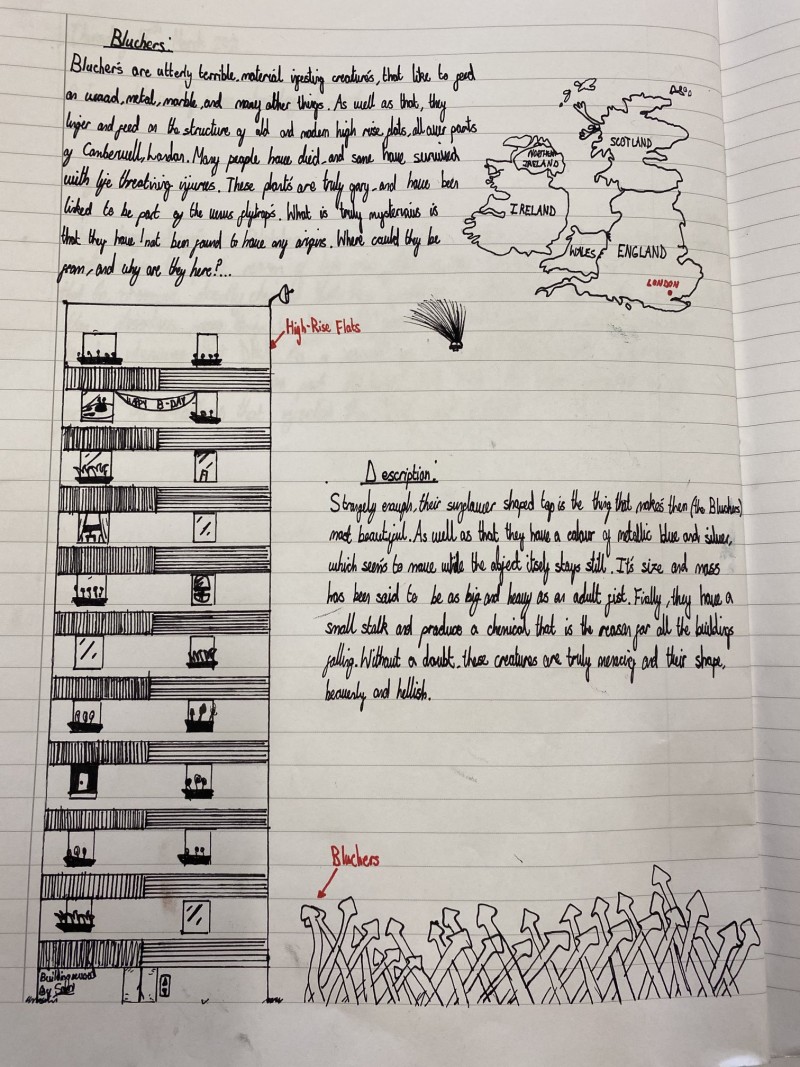 Bluchers:
Bluchers are utterly terrible, material injesting creatures, that like to feed
on wood, metal, marble, and many other things. As well as that, they
linger and feed on the structure of old and modern high rise flats, all over parts
of Camberwell, London. Many people have died, and some have survived
with life threatining injuries. These plants are truly gory, and have been
linked to be part of the venus flytraps. What is truly mysterious is
that they have not been found to have any origins. Where could they be
from, and why are they here?...
SCOTLAND
NORTHERN
IRELAND
IRELAND
WALES
ENGLAND
LONDON
High-Rise Flats
HAPPY B-DAY
Description:
Strangely enough, their sunflower shaped top is the thing that makes them (the Bluchers)
most beautiful. As well as that they have a colour of metallic blue and silver,
which seems to move while the object itself stays still. It's size and mass
has been said to be as big and heavy as an adult fist. Fially, they have a
small stalk and produce a chemical that is the reason for all the buildings
falling. Without a doubt, these creatures are truly menacing and their shape,
heavenly and hellish.
Bluchers
By